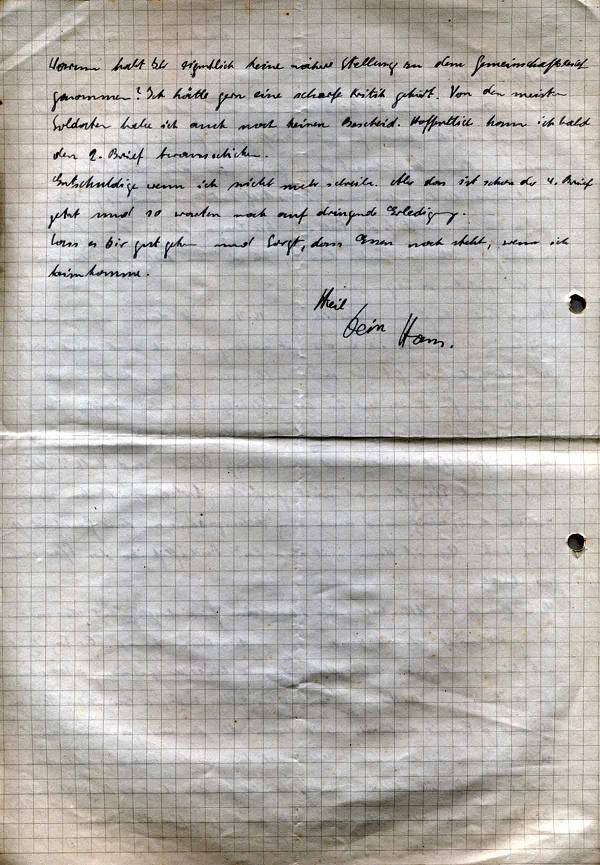 Warum habt Ihr eigentlich keine nähere Stellung zu dem Gemeinschaftsbrief
genommen? Ich hätte gern eine scharfe Kritik gehört. Von den meisten
Soldaten habe ich auch noch keinen Bescheid. Hoffentlich kann ich bald
den 2. Brief herausschicken.
Entschuldige wenn ich nicht mehr schreibe. Aber das ist schon der 4. Brief
jetzt und so warten noch auf dringende Erledigung.
Lass es Dir gut gehen und sorgt, dass Essen noch steht, wenn ich
heimkomme.
Heil
Dein Hans.